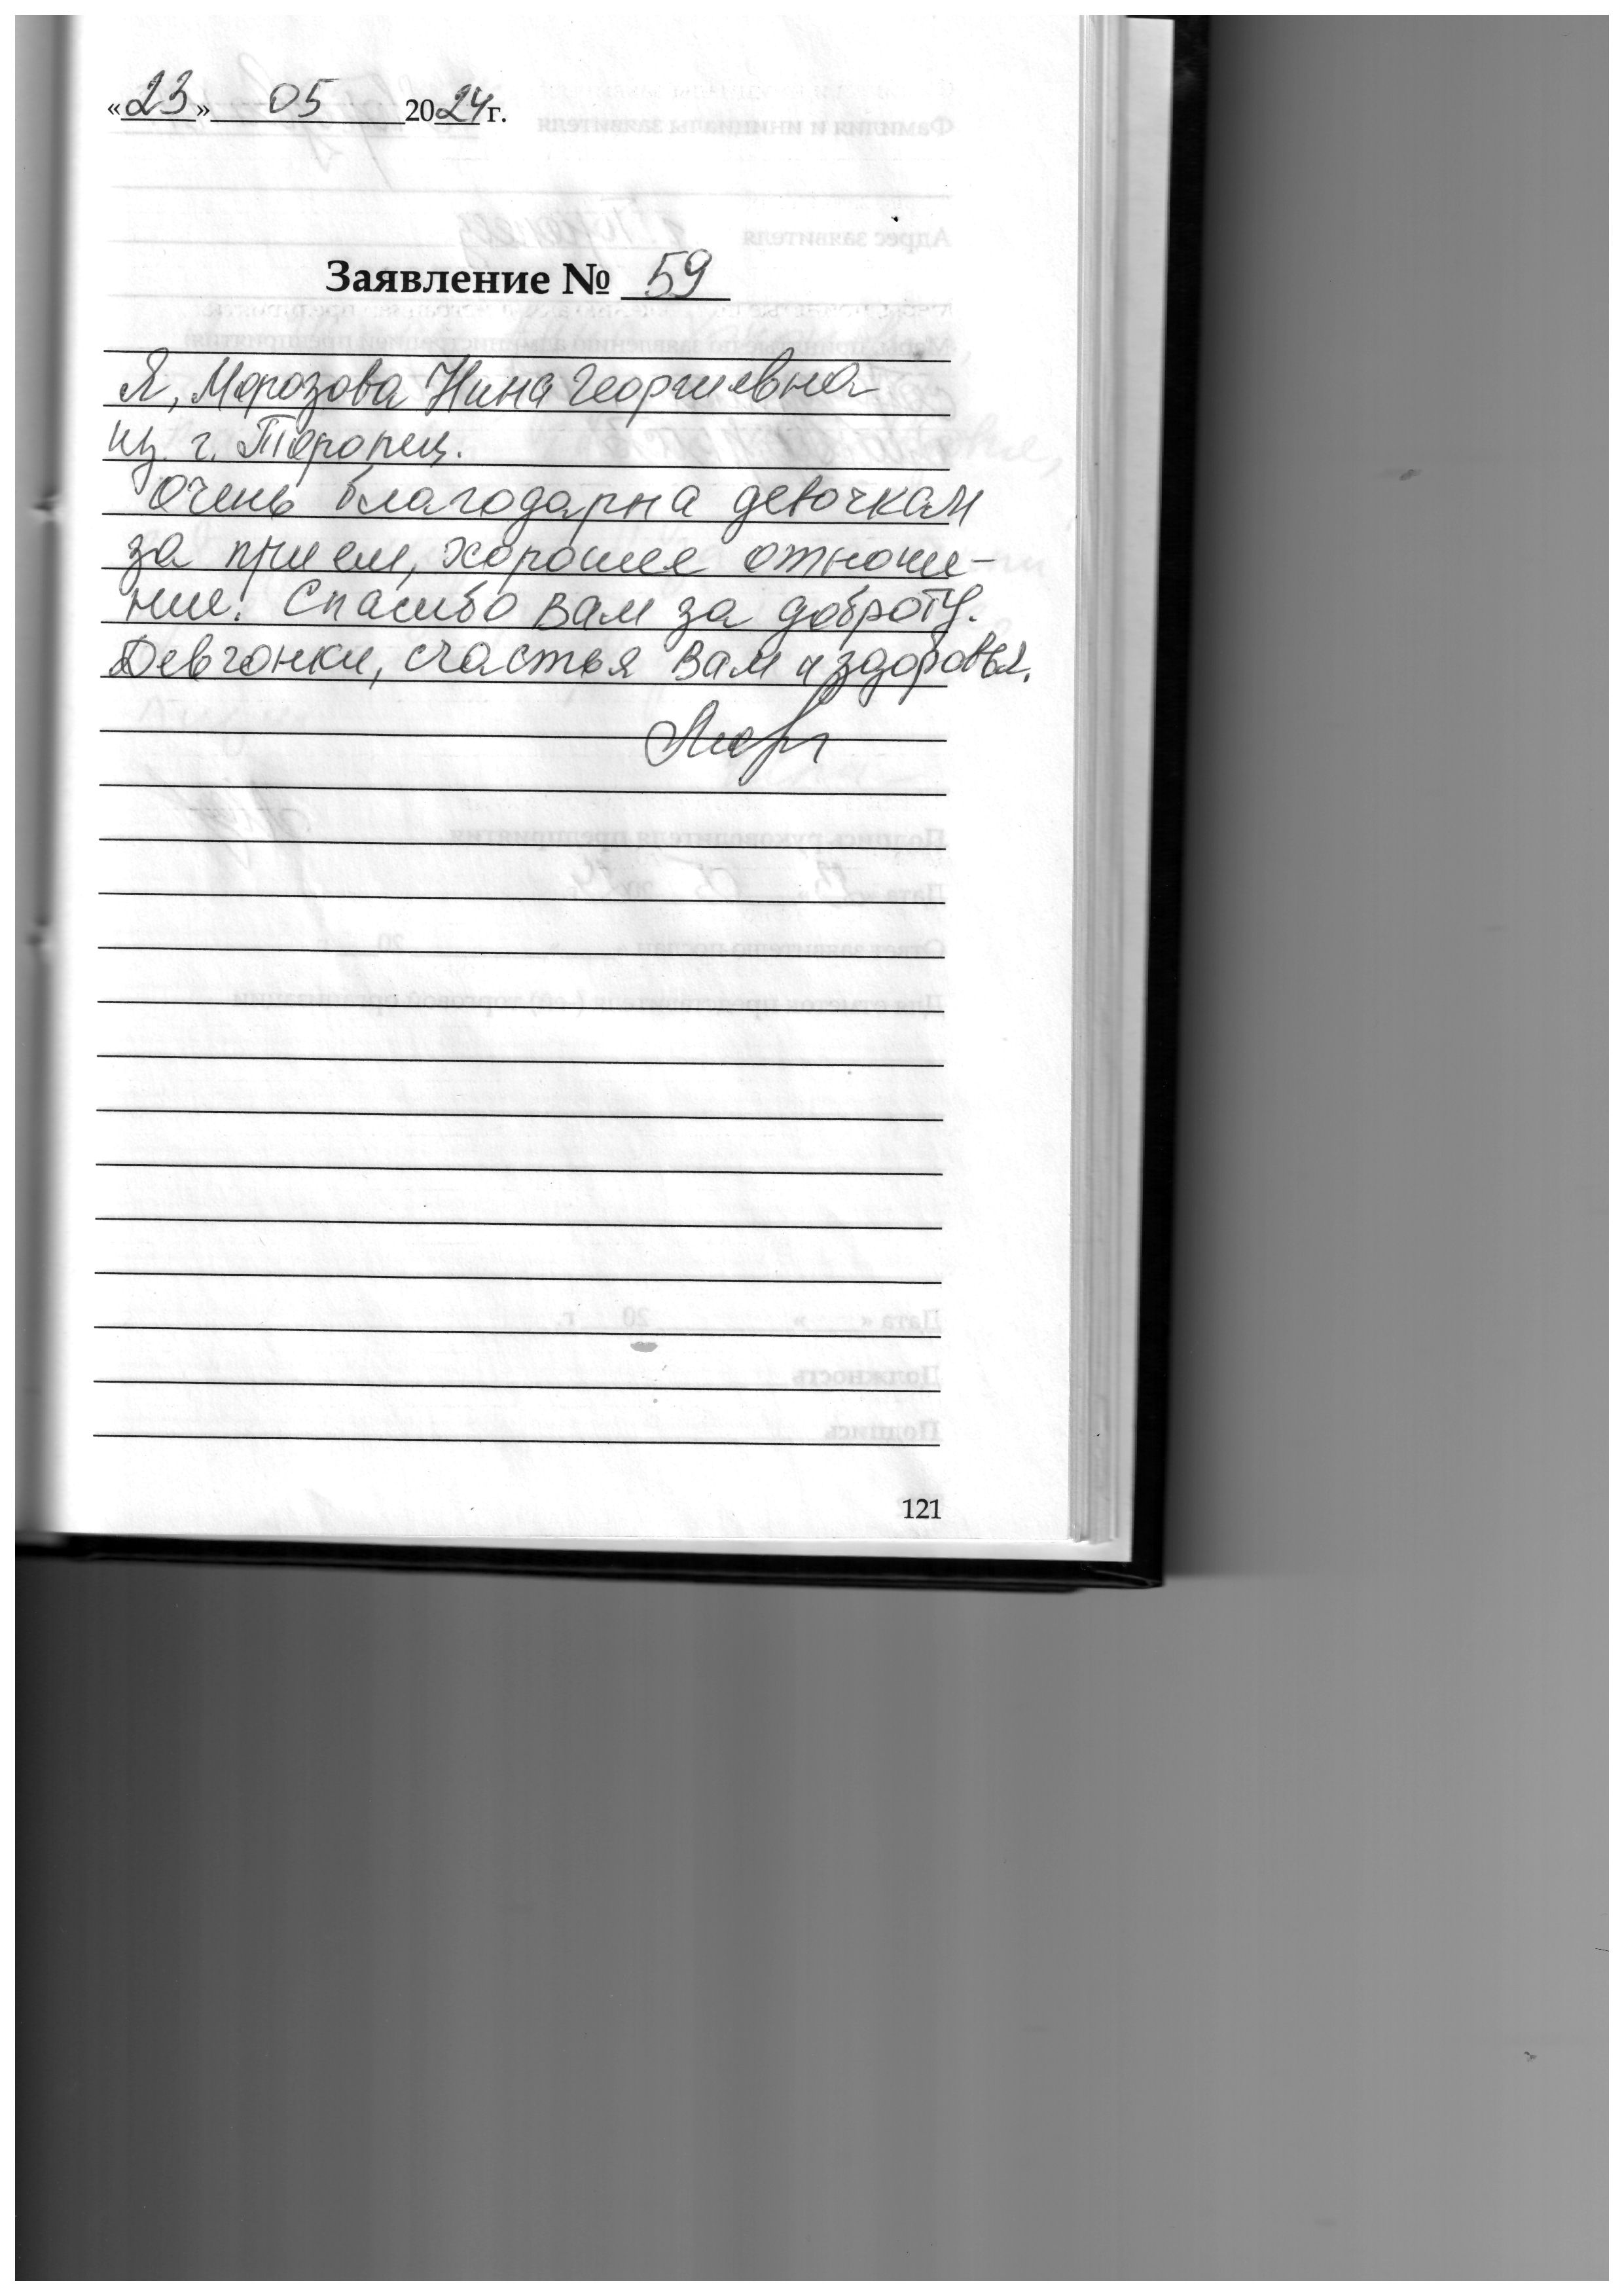 «23» 05 2024 г.
Заявление № 59
Я, Морозова Нина Георгиевна
из г. Торопец.
Очень благодарна девочкам
за прием, хорошее отноше-
ние! Спасибо Вам за доброту.
Девчонки, счастья Вам и здоровья.
121